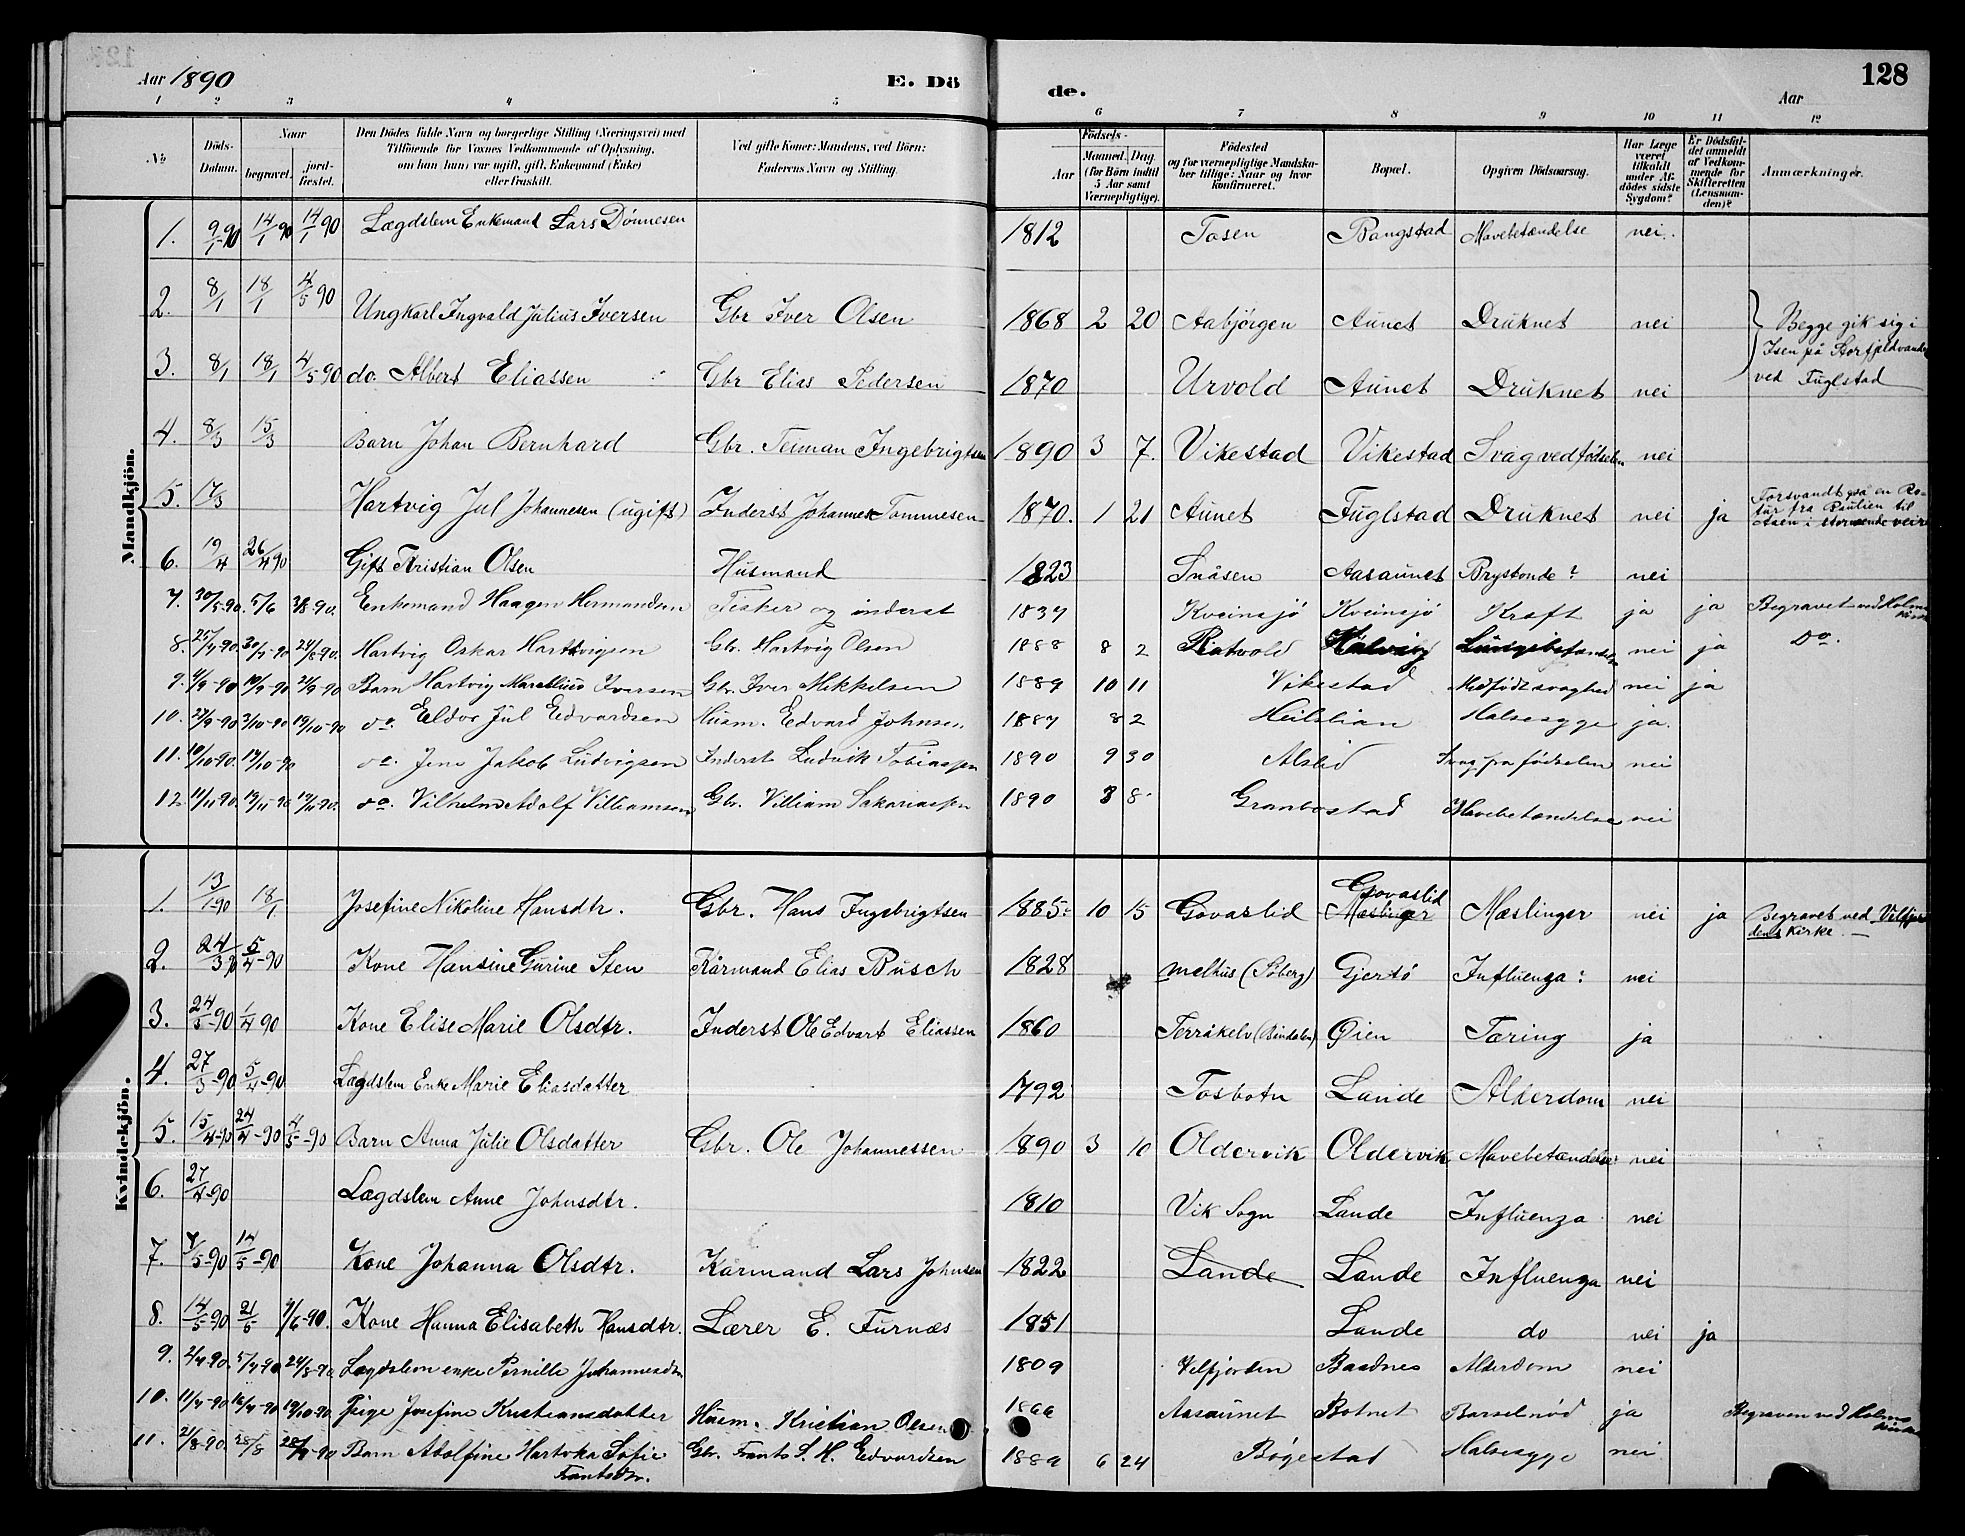 Aar 1890 E. Dö de. Aar 128
1 2 3 4 5 6 7 8 9 10 11 12
No Döds-Datum. Naar begravet. jord-fæstet. Den Dödes fulde Navn og borgerlige Stilling (Næringsvei) med Tilföiende for Voxnes Vedkommende af Oplysning, om han (hun) var ugift, gift, Enkemand (Enke) eller fraskilt. Ved gifte Koner: Mandens, ved Börn: Faderens Navn og Stilling. Födsels- Aar Maaned. Dag. (for Börn indtil 5 Aar samt Værnepligtige). Födested og for værnepligtige Mandskaber tillige: Naar og hvor konfirmeret. Bopæl. Opgiven Dödsaarsag. Har Læge været tilkaldt under Afdödes sidste Sygdom? Er Dödsfaldet anmeldt af Vedkommende for Skifteretten (Lensmanden)? Anmærkninger.
Mandkjön.
1. 9/1-90 14/1 90 14/1 90 Lægdslem Enkemand Lars Dönnesen 1812 Tosen Bangstad Mavebetændelse nei.
2. 8/1 18/1 4/5 90 Ungkarl Ingvald Julius Iversen Gbr Iver Olsen 1868 2 20 Aabjørgen Aunet Druknet nei Begge gik sig i
3. 8/1 18/1 4/5 90 do. Albert Eliassen Gbr Elias Pedersen 1870 Urvold Aunet Druknet nei Isen på Storfjeldvande ved Fuglstad
4. 8/3 15/3 Barn Johan Bernhard Gbr. Teiman Ingebrigtsen 1890 3 7. Vikestad Vikestad Svag ved fødselen nei
5. 17/3 Hartvig Jul Johannesen (ugift) Inderst Johannes Tommesen 1870. 1 21 Aunet Fuglstad Druknet nei ja Forsvandt på en Ro-
tur fra Paulien til
Aasen i stormende veir
6. 19/4 26/4 90 Gift Kristian Olsen Husmand 1823 Snåsen Aasaunet Brystonde? nei
7. 30/5-90 5/6 3/8-90. Enkemand Haagen Hermandsen Fisker og inderst 1837 Kveinsjö Kveinsjö Kræft ja ja Begravet ved Holms Kirke
8. 25/7-90. 30/7-90 24/8-90. Hartvig Oskar Hartvigsen Gbr. Hartvig Olsen 1888 8 2 Reatvold Halvseg nei ja Do.
9. 4/9-90 10/9-90 21/9-90 Barn Hartvig Marellius Iversen Gbr. Iver Mikkelsen 1889 10 11 Vikestad Medfødt svaghed nei ja
10. 27/9-90 3/10-90 19/10-90 do. Eldor Jul Edvardsen Husm. Edvard Johnsen 1887 8 2 Heilslian Halsesyge ja.
11. 10/10-90. 17/10-90 do. Jens Jakob Ludvigsen Inderst Ludvik Tobiassen 1890 9 30 Alslid Svag fra födselen nei
12. 11/11 90. 19/11-90 19/11-90. do. Vilhelm Adolf Villiamsen Gbr. Villiam Sakariassen 1890 3 8 Granbostad Mavebetændelse nei
Kvindekjön.
1. 13/1-90 18/1 Josefine Nikoline Hansdtr. Gbr. Hans Ingebrigtsen 1885 10 15 Govaslid Govaslid Mæslinger Mæslinger nei ja Begravet ved Velfjor-
dens Kirke.
2. 24/3 90 5/4-90 Kone Hansine Gurine Sten Kårmand Elias Busch 1828 Melhus (Söberg) Gjertö Influenza? nei
3. 24/3-90 1/4 90 Kone Elise Marie Olsdtr. Inderst Ole Edvart Eliassen 1860 Terråkelv (Bindalen) Øien Tæring ja
4. 27/3-90 5/4-90 Lægdslem Enke Marie Eliasdatter 1792 Tosbotn Lande Alderdom nei
5. 15/4-90 24/4-90 4/5-90 Barn Anna Julie Olsdatter Gbr. Ole Johannessen 1890 3 10 Oldervik Oldervik Mavebetændelse nei
6. 27/4-90 Lægdslem Anne Johnsdtr. 1810 Vik Sogn Lande Influenza nei
7. 7/5-90 14/5-90 Kone Johanna Olsdtr. Kårmand Lars Johnsen 1822 Lande Lande Influenza nei
8. 14/5-90 21/5 4/6-90. Kone Hanna Elisabeth Hansdtr. Lærer E. Furnæs 1851 Lande do nei ja
9. 2/7-90. 5/7-90 24/8-90 Lægdslem enke Pernille Johannesdtr 1809 Velfjorden Baadnes Alderdom nei
10. 11/7-90 16/7-90 19/10-90 Pige Josefine Kristiansdatter Husm. Kristian Olsen 1866 Aasaunet Botnet Barselnöd ja Begraven ved Holms Kirke
11. 21/8-90. 28/8 Barn Adolfine Hartvka Sofie Frantsdtr. Gbr. Frants S. H. Edvardsen 1889 6 24 Bøgestad Halsesyge nei